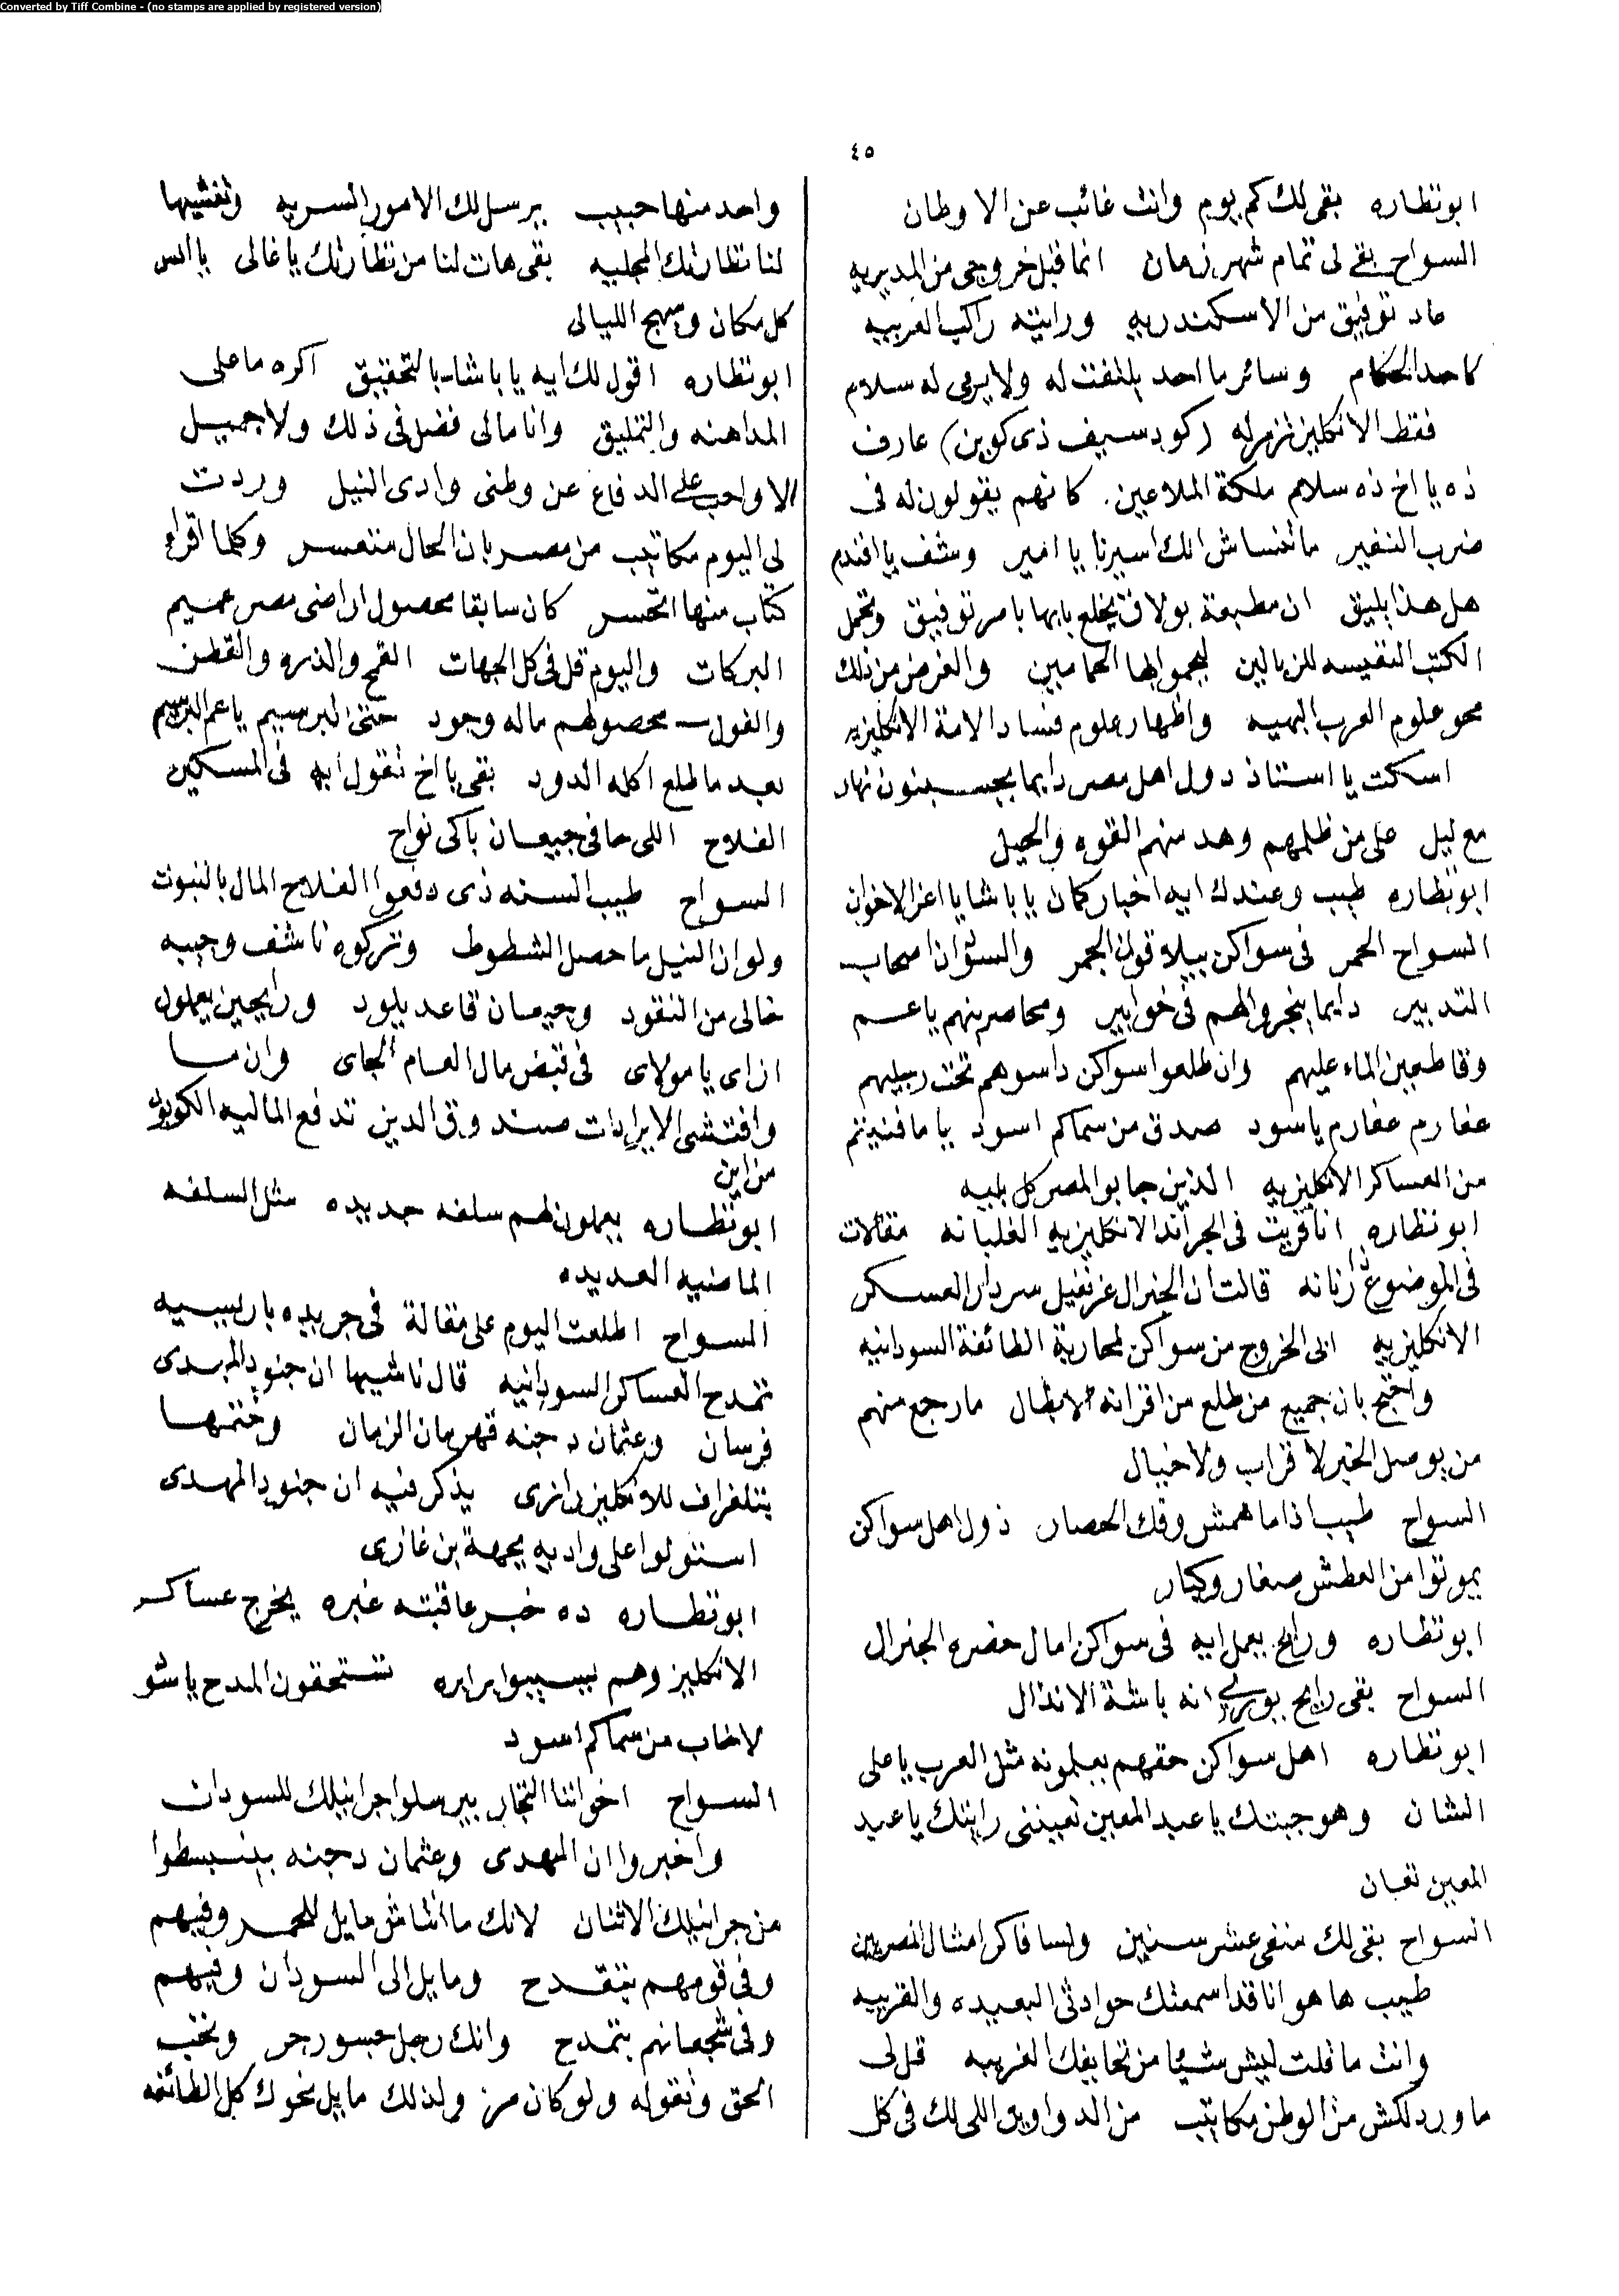 Converted by Tiff Combine - (no stamps are applied by registered version)
٤٥
ابونظاره بقى لك كم يوم وانت غائب عن الاوطان
السواح بقى لى تمام شهر زمان انما قبل خروجى من المديريه
عاد توفيق من الاسكندريه ورايته راكب العربيه
كاحد الحكام وسائر ما احد يلتفت له ولا يرمى له سلام
فقط الانكليز تزمر له (كود سيف ذى كوين) عارف
ذه يا اخ ذه سلام ملكة الملاعين. كانهم يقولون له فى
ضرب النفير ما تنساش انك اسيرنا يا امير وشف يا افندم
هل هذا يليق ان مطبعة بولاق يخلع بابها بامر توفيق وتحمل
الكتب النفيسه للزبالين ليحموا بها الحمامين والغرض من ذلك
محو علوم العرب البهيه واظهار علوم فساد الامة الانكليزيه
اسكت يا استاذ دول اهل مصر دايما بحسبنون نهار
مع ليل على من ظلمهم وهد منهم القوه والحيل
ابونظاره طيب وعندك ايه اخبار كمان يا باشا يا اعز الاخوان
السواح الحمر فى سواكن بيلاقون الجمر والسودان اصحاب
التدبير دايما بنجروا لهم فى خوابير ومحاصرينهم يا عم
وقاطعين الماء عليهم وان طلعوا سواكن داسوهم تحت رجليهم
عفارم عفارم يا سود صدق من سماكم اسود ياما فنيتم
من العساكر الانكليزيه الذين جابوا لمصر كل بليه
ابونظاره انا قريت فى الجرائد الانكليزيه الغلبانه مقالات
فى الموضوع ذا رنانه قالت ان الجنرال غرنفيل سردار العسكر
الانكليزيه ابى الخروج من سواكن لمحاربة الطائفة السودانيه
واحتج بان جميع من طلع من اقرانه الابطال ما رجع منهم
من يوصل الخبر لا قراب ولا خيال
السواح طيب اذا ماهمش وفك الحصار ذول اهل سواكن
يموتوا من العطش صغار وكبار
ابونظاره ورايح يعمل ايه فى سواكن امال حضره الجنرال
السواح بقى رايح يورى انه باشة الانذال
ابونظاره اهل سواكن حقهم يعملونه مثل العرب يا على
الشان وهو جبتك يا عبد المعين تعيننى رايتك يا عبد
المعين تعبان
السواح بقى لك منفى عشر سنين ولسا فاكر امثال المصريين
طيب ها هو انا قد اسمعتك حوادثى البعيده والقريبه
وانت ما قلت ليش شيئا من تحايفك الغريبه قل لى
ما ورد لكش من الوطن مكاتيب من الدواوين اللى لك فى كل
واحد منها حبيب يرسل لك الامور السريه وتفشيها
لنا نظارتك المجليه بقى هات لنا من نظارتك يا غالى يا انس
كل مكان وبهج الليالى
ابونظاره اقول لك ايه يا باشا بالتحقيق اكره ما على
المداهنه والتمليق وانا مالى فضل فى ذلك ولا جميل
الا واجب على الدفاع عن وطنى وادى النيل وردت
لى اليوم مكاتيب من مصر بان الحال متعسر وكلما اقراء
كتاب منها اتحسر كان سابقا محصول اراضى مصر عميم
البركات واليوم قل فى كل الجهات القمح والذره والقطن
والفول محصولهم ماله وجود حتى البرسيم يا عم البرسيم
بعد ما طلع اكله الدود بقى يا اخ تقول ايه فى المسكين
الفلاح اللى حافى جيعان باكى نواح
السواح طيب السنه ذى دفعوا الفلاح المال بالنبوت
ولو ان النيل ما حصل الشطوط وتركوه ناشف وجيبه
خالى من النقود وجيعان قاعد يلود ورايحين يعملون
ازاى يا مولاى فى قبض مال العام الجاى وان ما
وافتشى الايرادات صندوق الدين تدفع الماليه الكوبون
من اين
ابونظاره يعملون لهم سلفه جديده مثل السلفه
الماضيه العديده
السواح اطلعت اليوم على مقالة فى جريده باريسيه
تمدح العساكر السودانيه قال ناشيها ان جنود المهدى
فرسان وعثمان دجنه قهرمان الزمان وختمها
بتلغراف للانكليز انزى يذكر فيه ان جنود المهدى
استولوا على واديه بجهة بن غازى
ابونظاره ده خبر عاقبته عبره يخرج عساكر
الانكليز وهم بيسيبوا برابره تستحقون المدح يا شو
لا خاب من سماكم اسود
السواح اخواننا التجار بيرسلوا جرانيلك للسودان
واخبروا ان المهدى وعثمان دجنه بينبسطوا
من جرانيلك الاثنان لانك ما انتاش مايل للحمر وفيهم
وفى قومهم بتقدح ومايل الى السودان وفيهم
وفى شجعانهم بتمدح وانك رجل جسور حر وتحب
الحق وتقوله ولو كان مر ولذلك مايل نحوك كل الطائفه